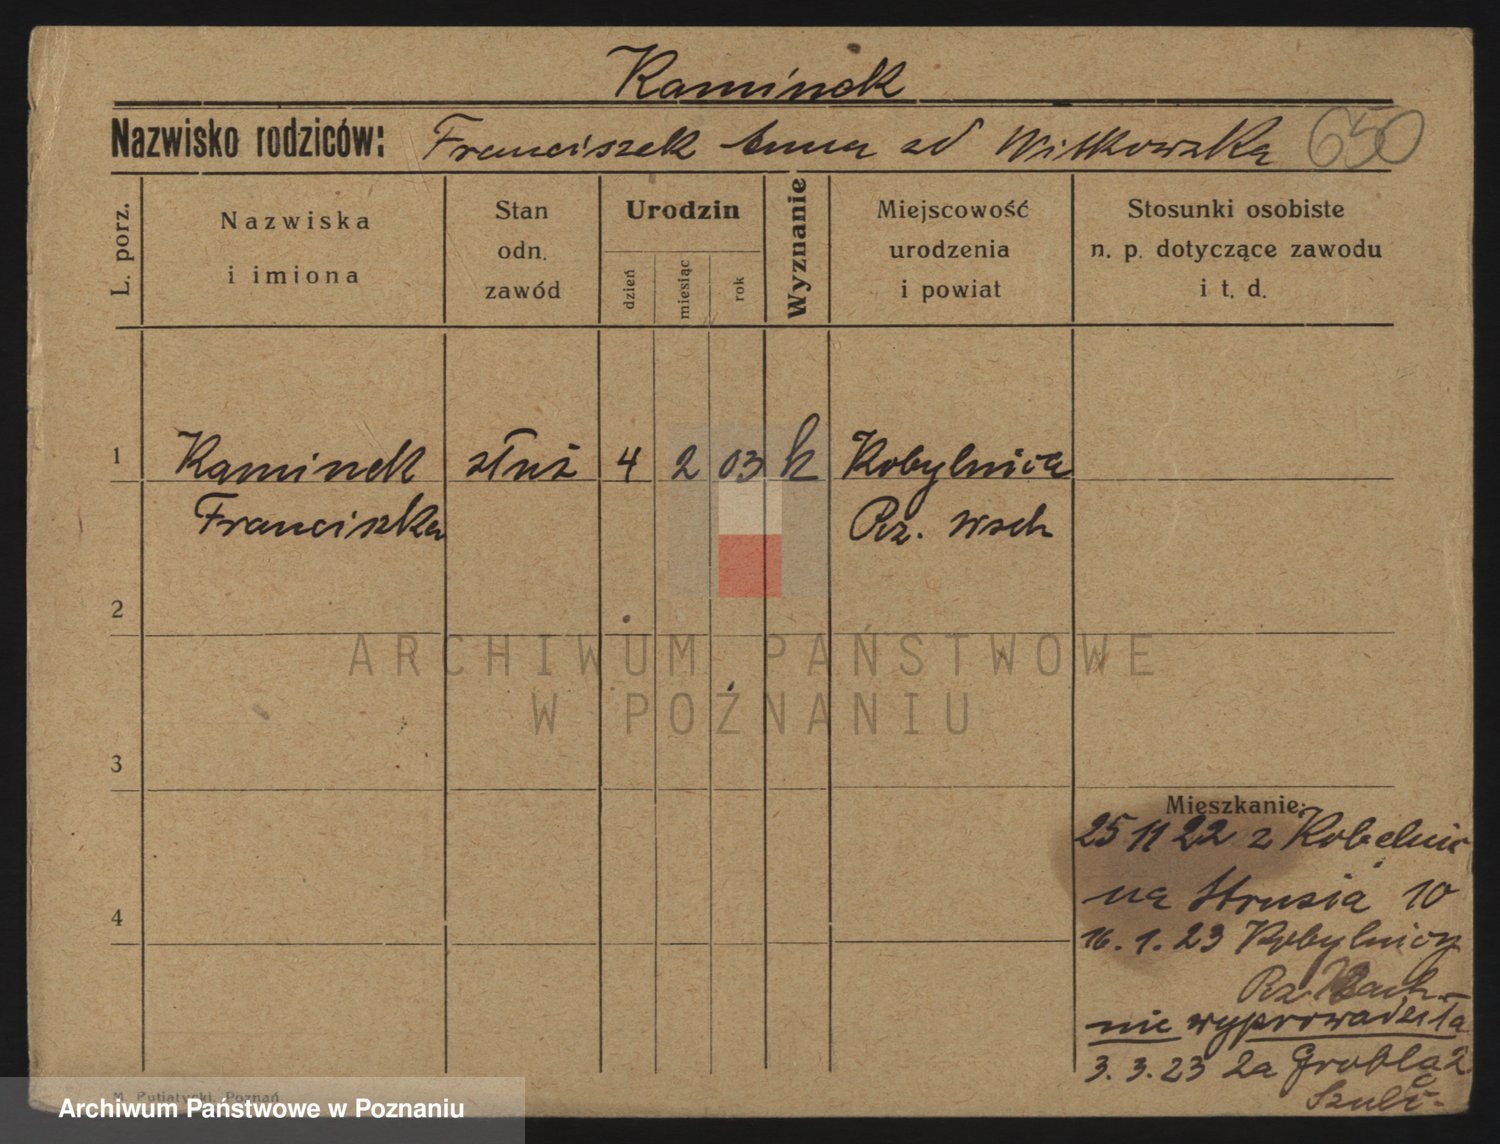 Kaminek
Nazwisko rodziców: Franciszek Anna od Witkowska 650
L. porz.
Nazwiska
i imiona
Stan
odn.
zawód
Urodzin
dzień
miesiąc
rok
Wyznanie
Miejscowość
urodzenia
i powiat
Stosunki osobiste
n. p. dotyczące zawodu
i t. d.
1 Kaminek służ 4 2 03 k Kobylnica
Franciszka Pz. wsch
2
ARCHIWUM PAŃSTWOWE
W POZNANIU
3
Mieszkanie:
25 11 22 z Kobelnic
na Strusia 10
4
16. 1. 23 Kobylnicy
Pz. Wsch.
nie wyprowadziła
3. 3. 23 Grobla 2
M. Putiatycki, Poznań
Archiwum Państwowe w Poznaniu